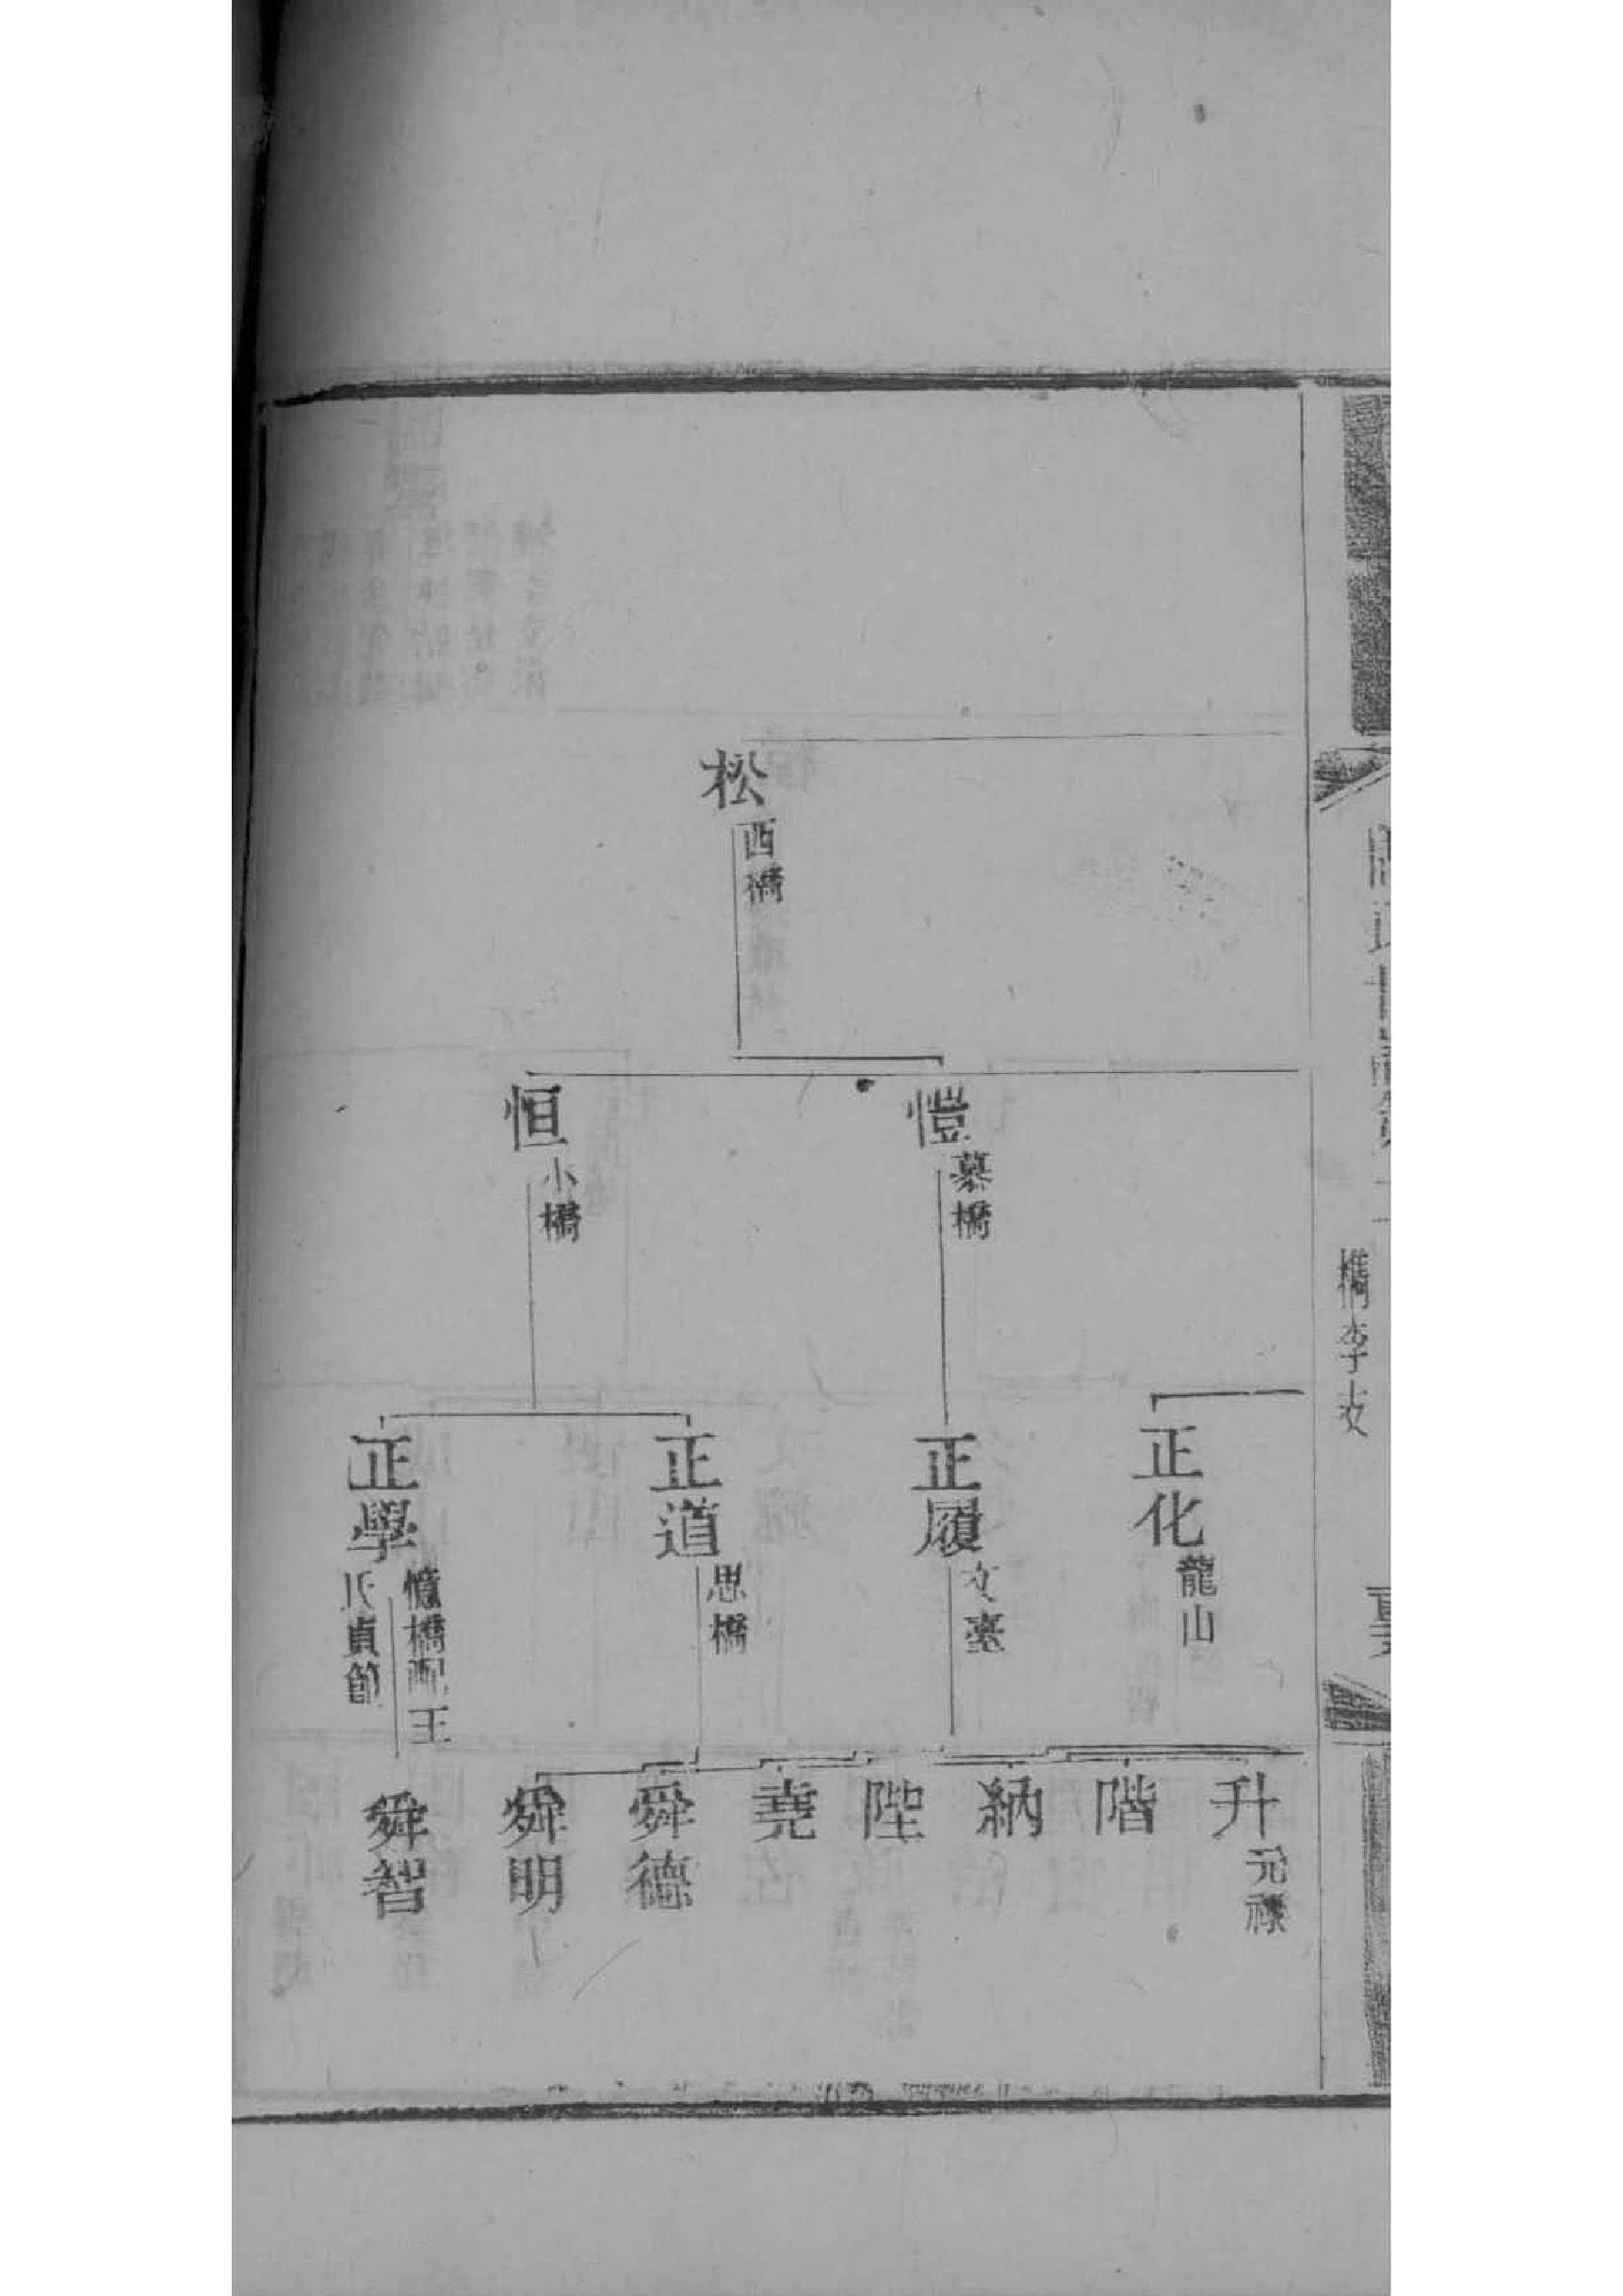 松
西橋
愷
慕橋
恒
小橋
正化
龍山
正履
文臺
正道
思橋
正學
憶橋配王
氏貞節
升
元祿
階
納
陛
堯
舜德
舜明
舜智